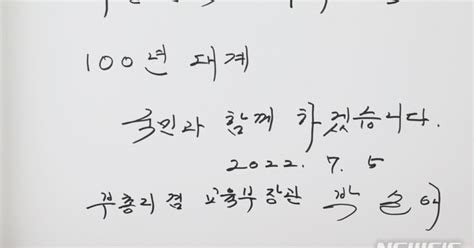 100년 대계
국민과 함께 하겠습니다.
2022. 7. 5
부총리 겸 교육부장관 박순애
NEWSIS